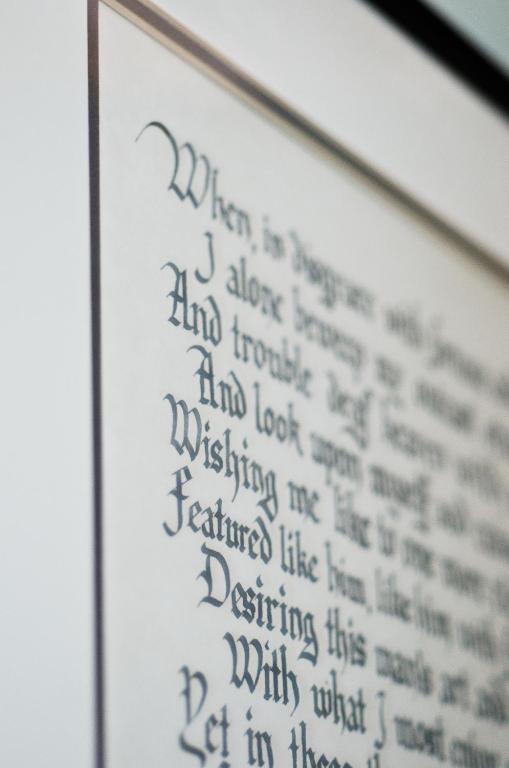 When, in disgrace with fortune
I alone beweep my outcast
And trouble deaf heaven with
And look upon myself and
Wishing me like to one more
Featured like him, like him with
Desiring this man's art and
With what I most enjoy
Yet in these